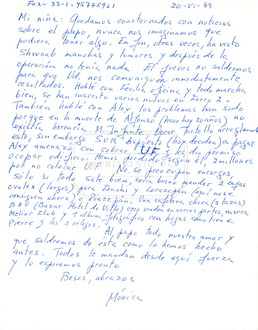 Fax-33-1-45775961 20-VI-89
Mi niña: Quedamos consternados con noticias
sobre el papo, nunca nos imaginamos que
pudiera tener algo. En fin, otras veces, ha visto
Shwaab manchas y tumores y después de la
operación no tenía nada. El jueves no saldremos
para que Ud. nos comuniquen inmediatamente
resultados. Hablé con Fecha oficina y todo marcha
bien, se han inscrito varios nuevos en Zero 2.-
También hablé con Alex, los problemas han sido
porque en la muerte de Alfonso (hace años) no
existía herencia. El Infinito, Tortello arreglando
esto, sin embargo SUR, dispuesto (hoy deuda) a pagar
Alex amenazó con cobrar les da permiso
ocupar edificio. Hemos perdido según él, 2 millones
por no cobrar UF. No se preocupen energos,
sólo si todo sale bien, sería bueno mandar 2 cajas
ovulex (largos) para Zenobi y Lorazepán (aquí no se
consiguen ahora) o Diazepán. Una cafetera chica (2 tazas)
BHV (Bazar Hotel de Ville) creo venden en varias partes, marca
Melior Club y 1 álbum fotográfico con hojas como tiene
Pierre y los 2 relojes.
Al papo todo nuestro amor y
que saldremos de esta como lo hemos hecho
antes. Todos le mandan desde aquí fuerza
y lo esperamos pronto
Besos, abrazos
Mónica